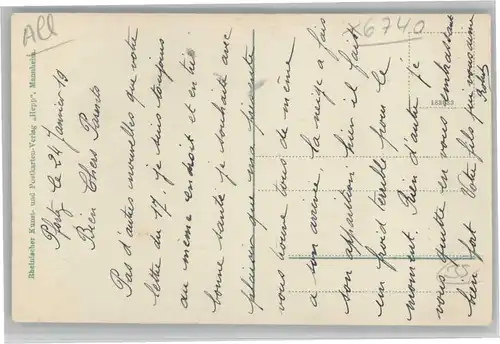 All
6740
Rheinischer Kunst- und Postkarten-Verlag „Hepp", Mannheim.
153953
Pfortz le 24 Janvier 19
Bien Chers Parents
Pas d'autres nouvelles que votre
lettre du 17. je suis toujours
au même endroit et en très
bonne santé je souhaite avec
plaisir que ma présente
vous trouve tous de même
à son arrivée. La neige a fais
son apparition hier il fait
un froid terrible pour le
moment. Rien d'autre je
vous quitte en vous embrassant
bien fort Votre fils qui vous aime